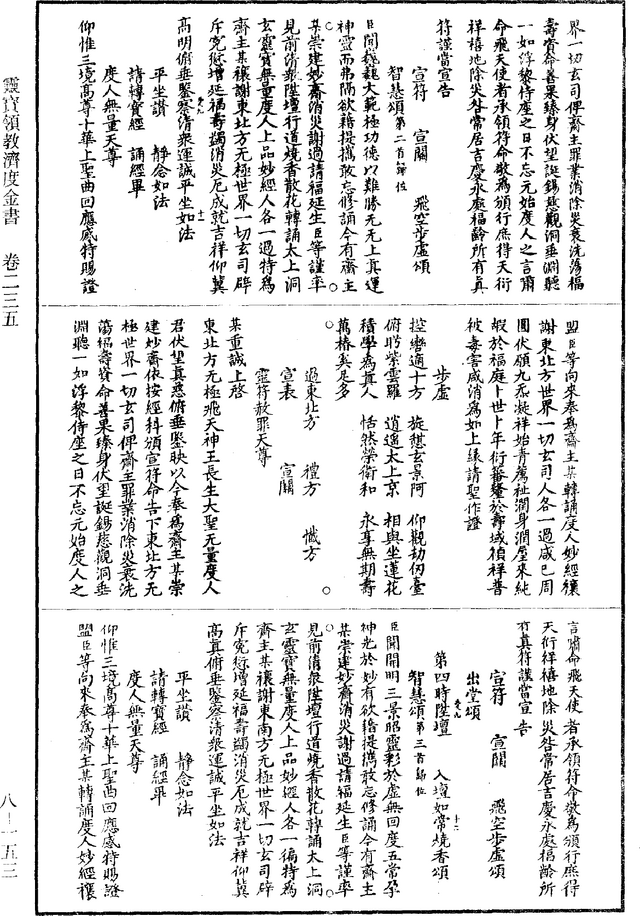 界一切玄司俾齋主罪業消除災衰洗蕩福
壽資命善果臻身伏望誕錫慈觀洞垂淵聽
一如浮黎侍座之日不忘元始度人之言肅
命飛天使者承領符命徼為頒行庶得天衍
祥禧地除災咎常居吉慶永處福齡所有真
符謹當宣告
宣符　宣關　飛空步虛頌
智慧頌第二首歸位
臣聞巍巍大範極功德以難勝无无上真運
神靈而弗隔欲藉提攜敢忘修誦今有齋主
某崇建妙齋消災謝過請福延生臣等謹率
見前清衆陞壇行道燒香散花轉誦太上洞
玄靈寶無量度人上品妙經人各一過特為
齋主某禳謝東北方无極世界一切玄司辟
斥寃愆增延福壽蠲消災厄成就吉祥仰冀
高明俯垂鑒察清衆運誠平坐如法
平坐讚　靜念如法
請轉寶經　誦經畢
度人無量天尊
仰惟三境高尊十華上聖曲回應感特賜證
盟臣等向來奉為齋主某轉誦度人妙經禳
謝東北方世界一切玄司人各一過咸已周
圓伏願九炁凝祥始青薦祉潤身潤屋來純
嘏於福庭卜世卜年衍蕃釐於壽域禎祥普
被毒害咸消為如上緣請聖作證
步虛
控轡適十方　旋憇玄景阿　仰觀劫仞臺
俯眄紫雲羅　逍遙太上京　相與坐蓮花
積學為真人　恬然榮衛和　永享無期壽
萬椿奚足多
過東北方　禮方　懺方
宣表　宣關
靈符赦罪天尊
某重誠上啓
東北方无極飛天神王長生大聖无量度人
君伏望真慈俯垂鑒映以今奉為齋主某崇
建妙齋依按經科頒宣符命告下東北方无
極世界一切玄司俾齋主罪業消除災衰洗
蕩福壽資命善果臻身伏望誕錫慈觀洞垂
淵聽一如浮黎侍座之日不忘元始度人之
言肅命飛天使者承領符命徼為頒行庶得
天衍祥禧地除災咎常居吉慶永處福齡所
有真符謹當宣告
宣符　宣關　飛空步虛頌
出堂頌
第四時陞壇　入壇如常燒香頌
智慧頌第三首歸位
臣聞開明三景昭靈彩於虛無回度五常孕
神光於妙有欲藉提攜敢忘修誦今有齋主
某崇建妙齋消災謝過請福延生臣等謹率
見前清衆陞壇行道燒香散花轉誦太上洞
玄靈寶無量度人上品妙經人各一徧特為
齋主某禳謝東南方无極世界一切玄司辟
斥寃愆增延福壽蠲消災厄成就吉祥仰冀
高真俯垂鑒察清衆運誠平坐如法
平坐讚　靜念如法
請轉寶經　誦經畢
度人無量天尊
仰惟三境高尊十華上聖曲回應感特賜證
盟臣等向來奉為齋主某轉誦度人妙經禳
靈寶領教濟度金書　卷二三五
八－一五三